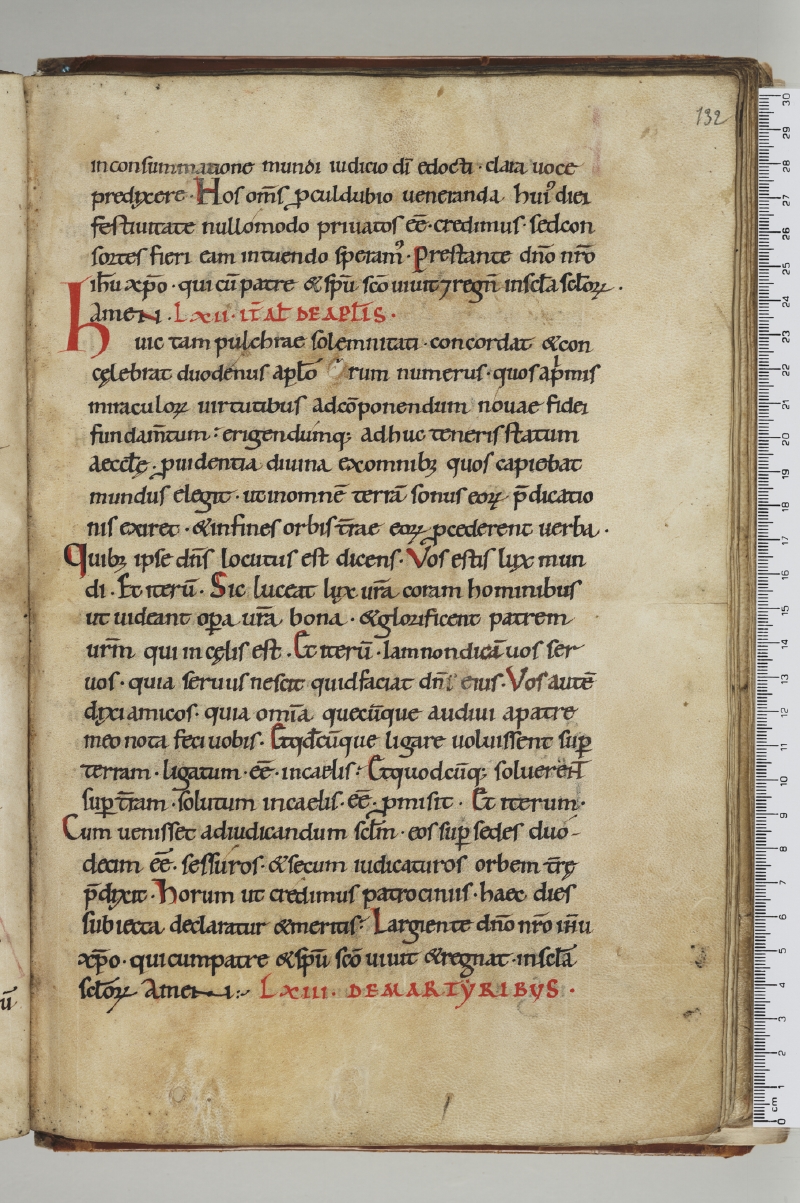 132
inconsummatione mundi iudicio dī edocti · clara uoce
predixere · Hos om̄s ꝓculdubio ueneranda huiꝰ diei
festiuitate nullomodo priuatos ēē · credimus · sedcon
sortes fieri eam intuendo speramꝰ · Prestante dn̄o nr̄o
ih̄u xp̄o · qui cū patre &sp̄u sc̄o uiuit ⁊ regn̄ insc̄la sc̄loꝝ .
amen . Lxii · IT̄ AL̄ DE APL̄IS ·
Huic tam pulchrae solemnitati · concordat &con
cęlebrat duodenus apl̄o rum numerus · quos ap̄mis
miraculoꝝ uirtutibus adcōponendum nouae fidei
fundam̄tum · erigendumq; adhuc teneris statum
aeccl̄ę · ꝓuidentia diuina exomnibꝫ quos capiebat
mundus elegit · utinomnē terrā sonus eoꝝ p̄dicatio
nis exiret · &infines orbis tr̄ae eoꝝ ꝓcederent uerba ·
Quibꝫ ipse dn̄s locutus est dicens · Vos estis lux mun
di · Et iterū · Sic luceat lux ur̄a coram hominibus
ut uideant oꝑa ur̄a bona · &glorificent patrem
urm̄ qui in cęlis est · Et iterū · Iamnondicā uos ser
uos · quia seruus nescit quidfaciat dn̄s eius · Vos autē
dixi amicos · quia omīa quecūque audiui apatre
meo nota feci uobis · Etqd̄cūque ligare uoluissent suꝑ
terram · ligatum · ēē · incaelis : Etquodcūq; soluerent
suꝑ tr̄am · solutum incaelis · ēē · ꝓmisit · Et iterum ·
Cum uenisset adiudicandum scl̄m · eos suꝑ sedes duo-
decim ēē · sessuros · &secum iudicaturos orbem tr̄ę
p̄dixit · Horum ut credimus patrociniis · haec dies
subiecta declaratur &meritis : Largiente dn̄o nr̄o ih̄u
xp̄o · quicumpatre &sp̄u sc̄o uiuit &regnat · insc̄la
sc̄loꝝ Amen : Lxiii · DE MARTYRIBUS ·
ū